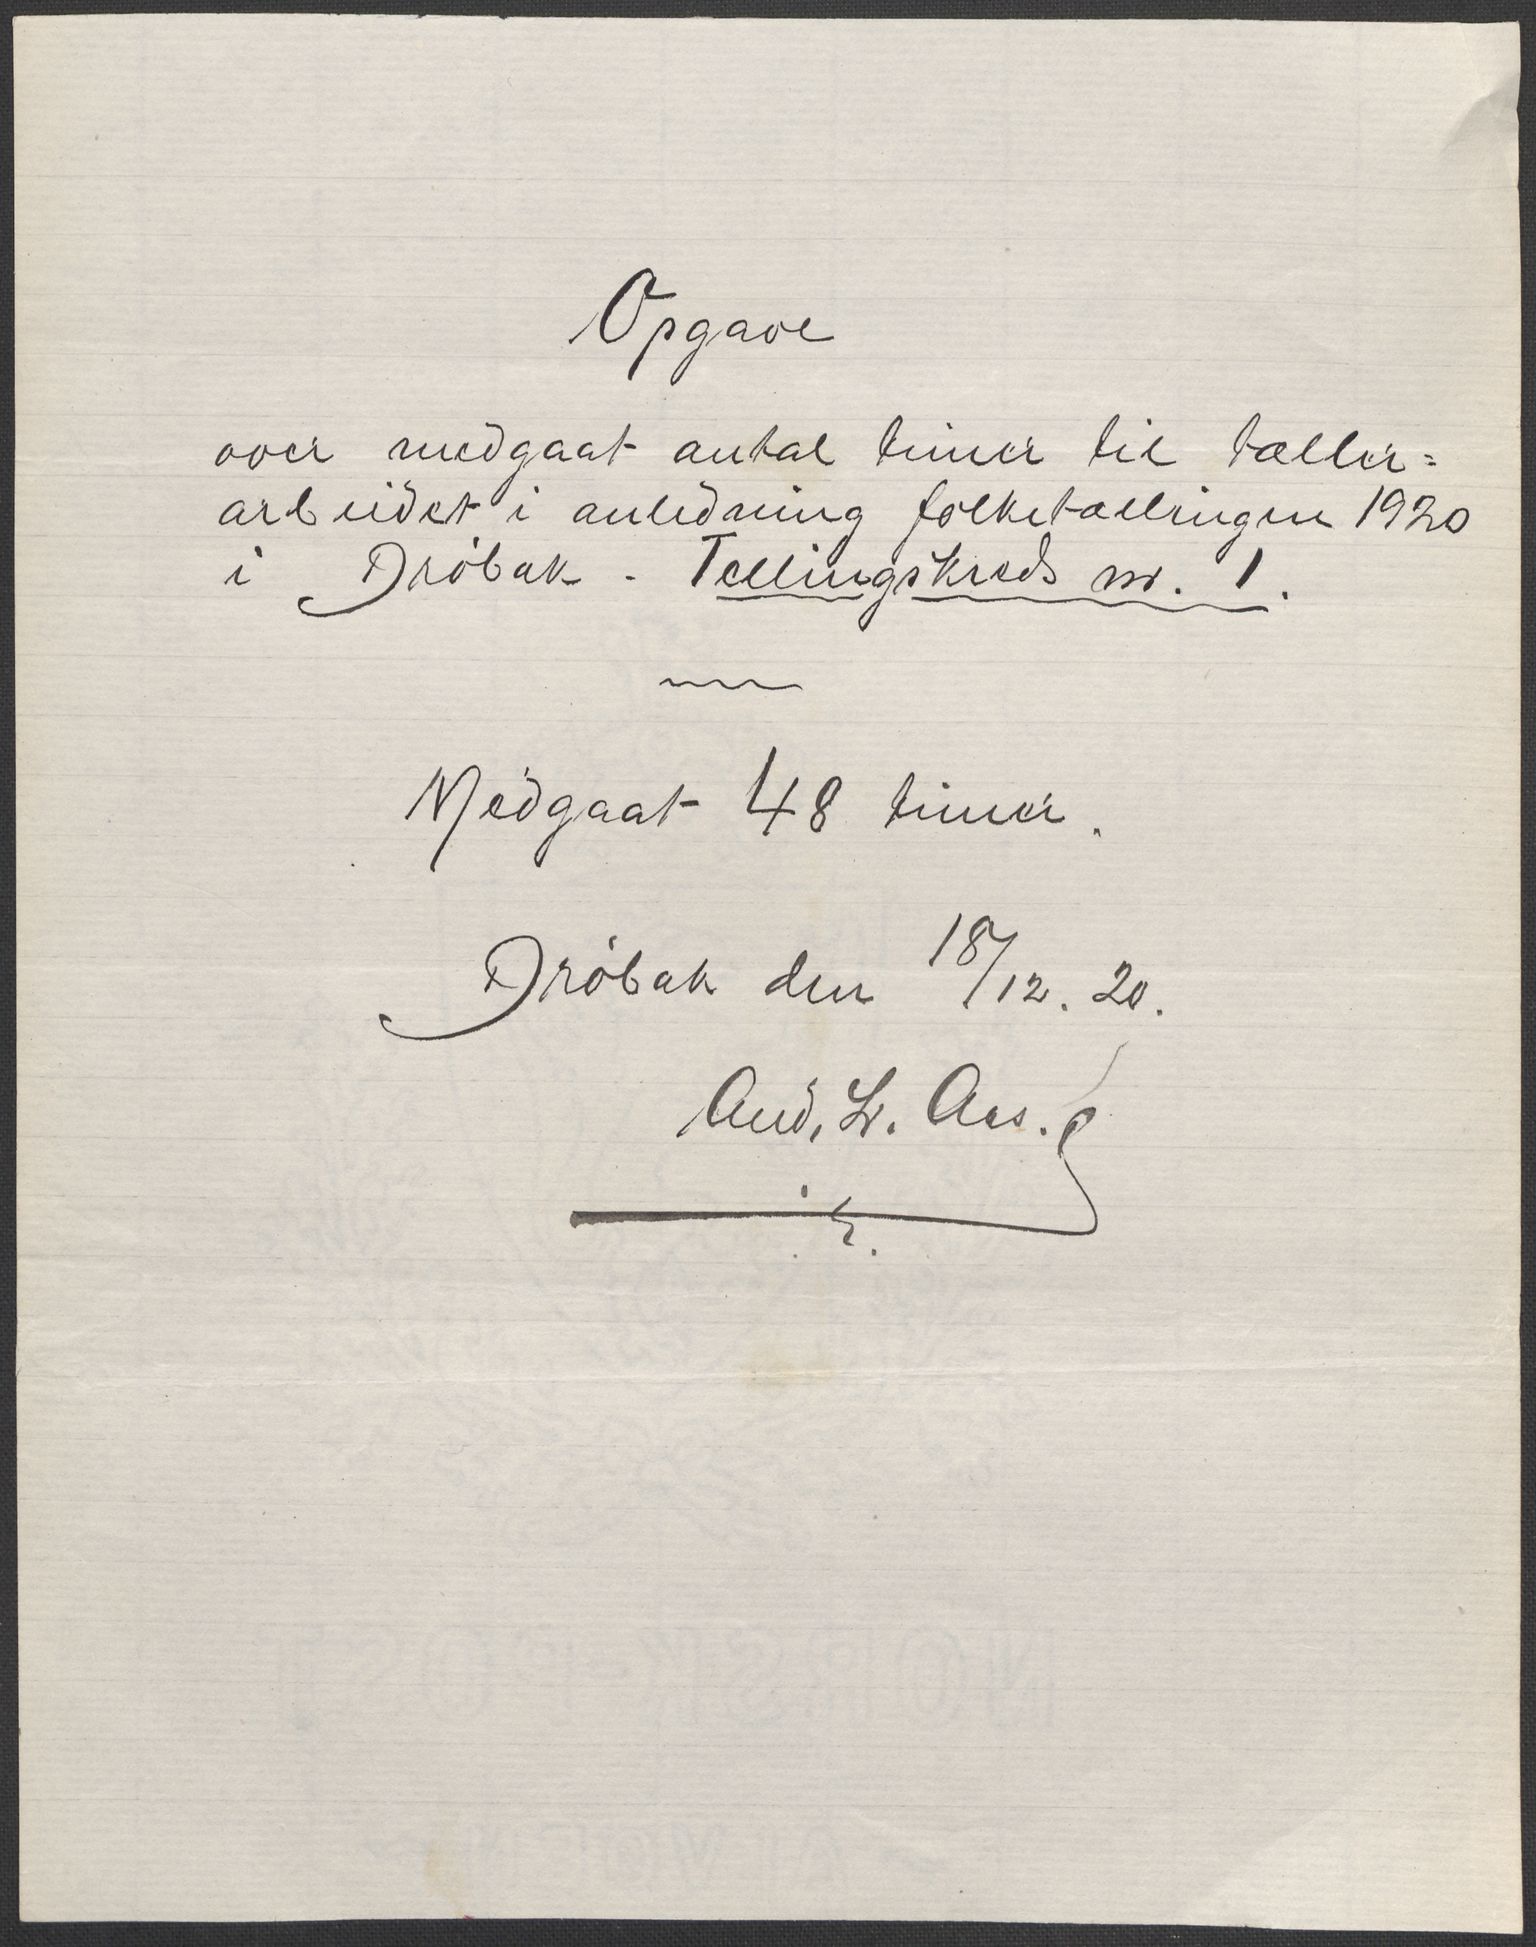 Opgave
over medgaat antal timer til tæller=
arbeidet i anledning folketællingen 1920
i Drøbak - Tellingskreds nr. 1.
Medgaat 48 timer.
Drøbak den 18/12. 20.
And. L. Aas.